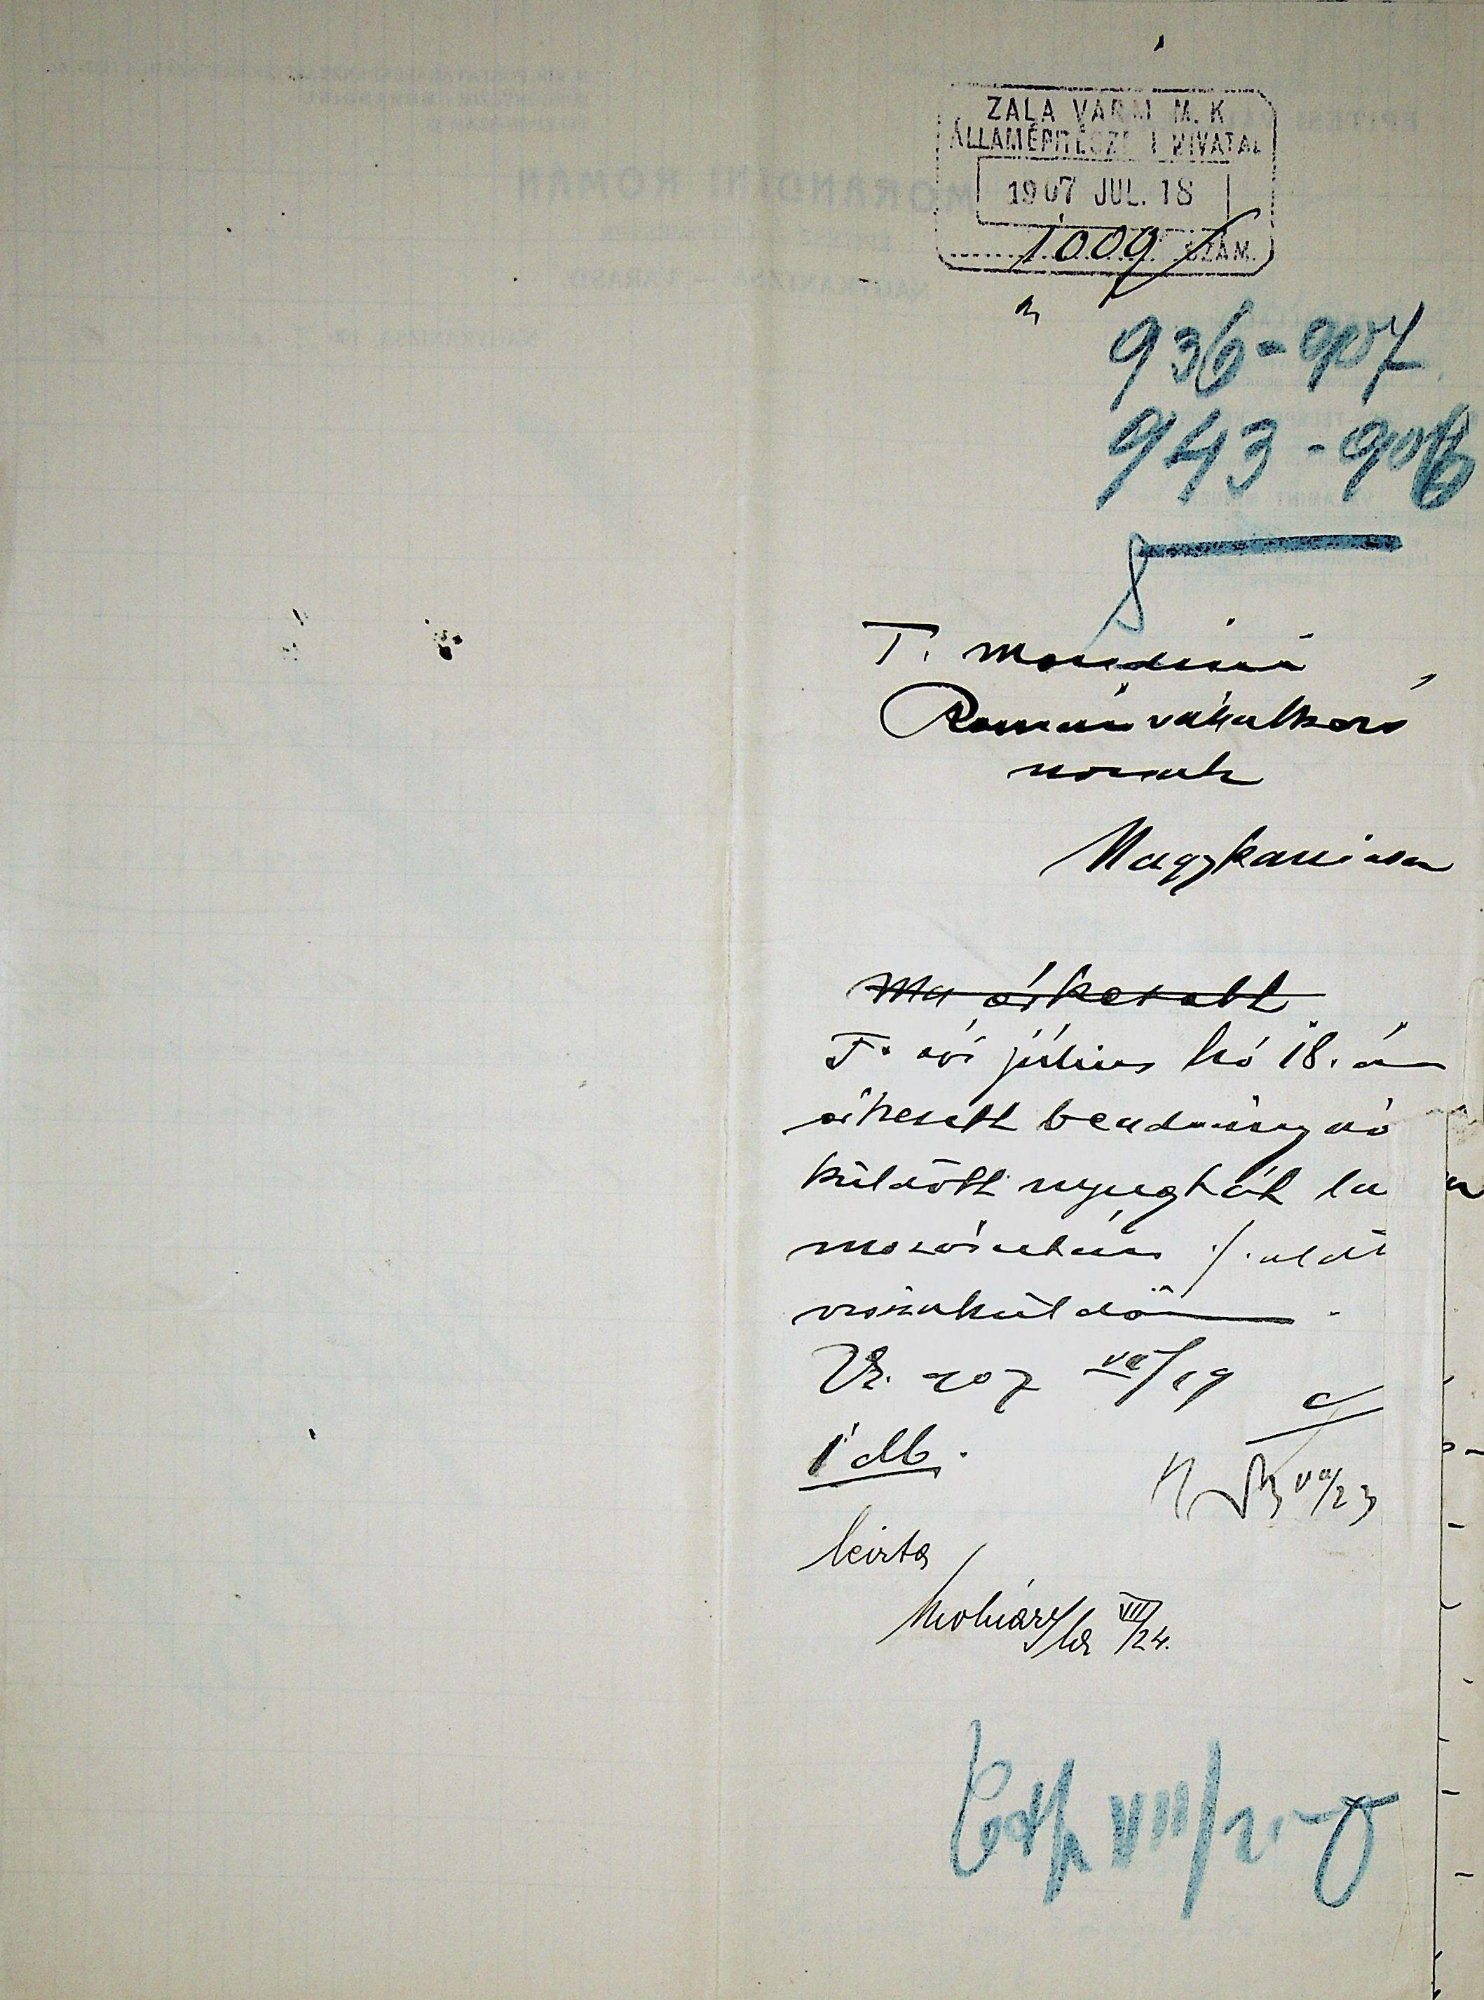 ZALA VÁRM. M. K.
ÁLLAMÉPITÉSZETI HIVATAL
1907 JUL. 18
1009 SZÁM.
936-907
943-906
T. Morandini
Román vállalkozó
úrnak
Nagykanizsa
Ma érkezett
F. évi július hó 18.-án
érkezett beadványná
küldött nyugtát
./. alatt
visszaküldöm.
907 VII/19
1 db.
VII/23
leirta
Molnár VII/24.
VII/25